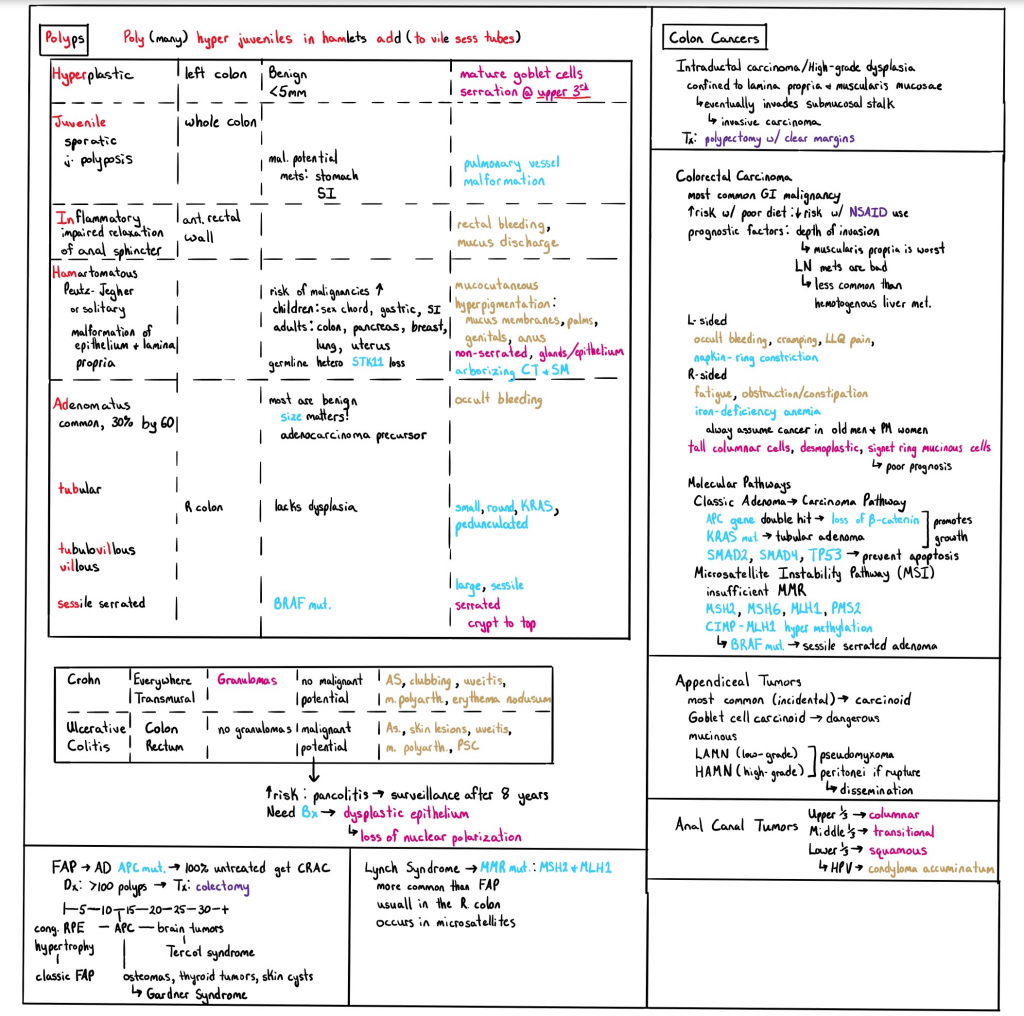 Polyps
Poly (many) hyper juveniles in hamlets add (to vile sess tubes)
Hyperplastic
left colon
Benign
<5mm
mature goblet cells
serration @ upper 3rd
Juvenile
sporatic
j. polyposis
whole colon
mal. potential
mets: stomach
SI
pulmonary vessel
malformation
Inflammatory
impaired relaxation
of anal sphincter
ant. rectal
wall
rectal bleeding,
mucus discharge
Hamartomatous
Peutz-Jegher
or solitary
malformation of
epithelium + lamina
propria
risk of malignancies ↑
children: sex chord, gastric, SI
adults: colon, pancreas, breast,
lung, uterus
germline hetero STK11 loss
mucocutaneous
hyperpigmentation:
mucus membranes, palms,
genitals, anus
non-serrated, glands/epithelium
arborizing CT + SM
Adenomatus
common, 30% by 60
most are benign
size matters!
adenocarcinoma precursor
occult bleeding
tubular
R colon
lacks dysplasia
small, round, KRAS,
pedunculated
tubulovillous
villous
large, sessile
sessile serrated
BRAF mut.
serrated
crypt to top
Crohn
Everywhere
Transmural
Granulomas
no malignant
potential
AS, clubbing, uveitis,
m. polyarth., erythema nodusum
Ulcerative
Colitis
Colon
Rectum
no granulomas
malignant
potential
As., skin lesions, uveitis,
m. polyarth., PSC
↑risk: pancolitis → surveillance after 8 years
Need Bx → dysplastic epithelium
↳ loss of nuclear polarization
FAP → AD APC mut. → 100% untreated get CRAC
Dx: >100 polyps → Tx: colectomy
5-10-15-20-25-30-+
cong. RPE - APC - brain tumors
hypertrophy
Tercot syndrome
classic FAP
osteomas, thyroid tumors, skin cysts
↳ Gardner Syndrome
Lynch Syndrome → MMR mut.: MSH2 + MLH1
more common than FAP
usuall in the R. colon
occurs in microsatellites
Colon Cancers
Intraductal carcinoma/High-grade dysplasia
confined to lamina propria + muscularis mucosae
↳ eventually invades submucosal stalk
↳ invasive carcinoma
Tx: polypectomy w/ clear margins
Colorectal Carcinoma
most common GI malignancy
↑risk w/ poor diet: ↓risk w/ NSAID use
prognostic factors: depth of invasion
↳ muscularis propria is worst
LN mets are bad
↳ less common than
hemotogenous liver met.
L-sided
occult bleeding, cramping, LLQ pain,
napkin-ring constriction
R-sided
fatigue, obstruction/constipation
iron-deficiency anemia
alway assume cancer in old men + PM women
tall columnar cells, desmoplastic, signet ring mucinous cells
↳ poor prognosis
Molecular Pathways
Classic Adenoma → Carcinoma Pathway
APC gene double hit → loss of β-catenin
KRAS mut → tubular adenoma
promotes
growth
SMAD2, SMAD4, TP53 → prevent apoptosis
Microsatellite Instability Pathway (MSI)
insufficient MMR
MSH2, MSH6, MLH1, PMS2
CIMP-MLH1 hyper methylation
↳ BRAF mut → sessile serrated adenoma
Appendiceal Tumors
most common (incidental) → carcinoid
Goblet cell carcinoid → dangerous
mucinous
LAMN (low-grade)
HAMN (high-grade)
pseudomyxoma
peritonei if rupture
↳ dissemination
Anal Canal Tumors
Upper ⅓ → columnar
Middle ⅓ → transitional
Lower ⅓ → squamous
↳ HPV → condyloma accuminatum